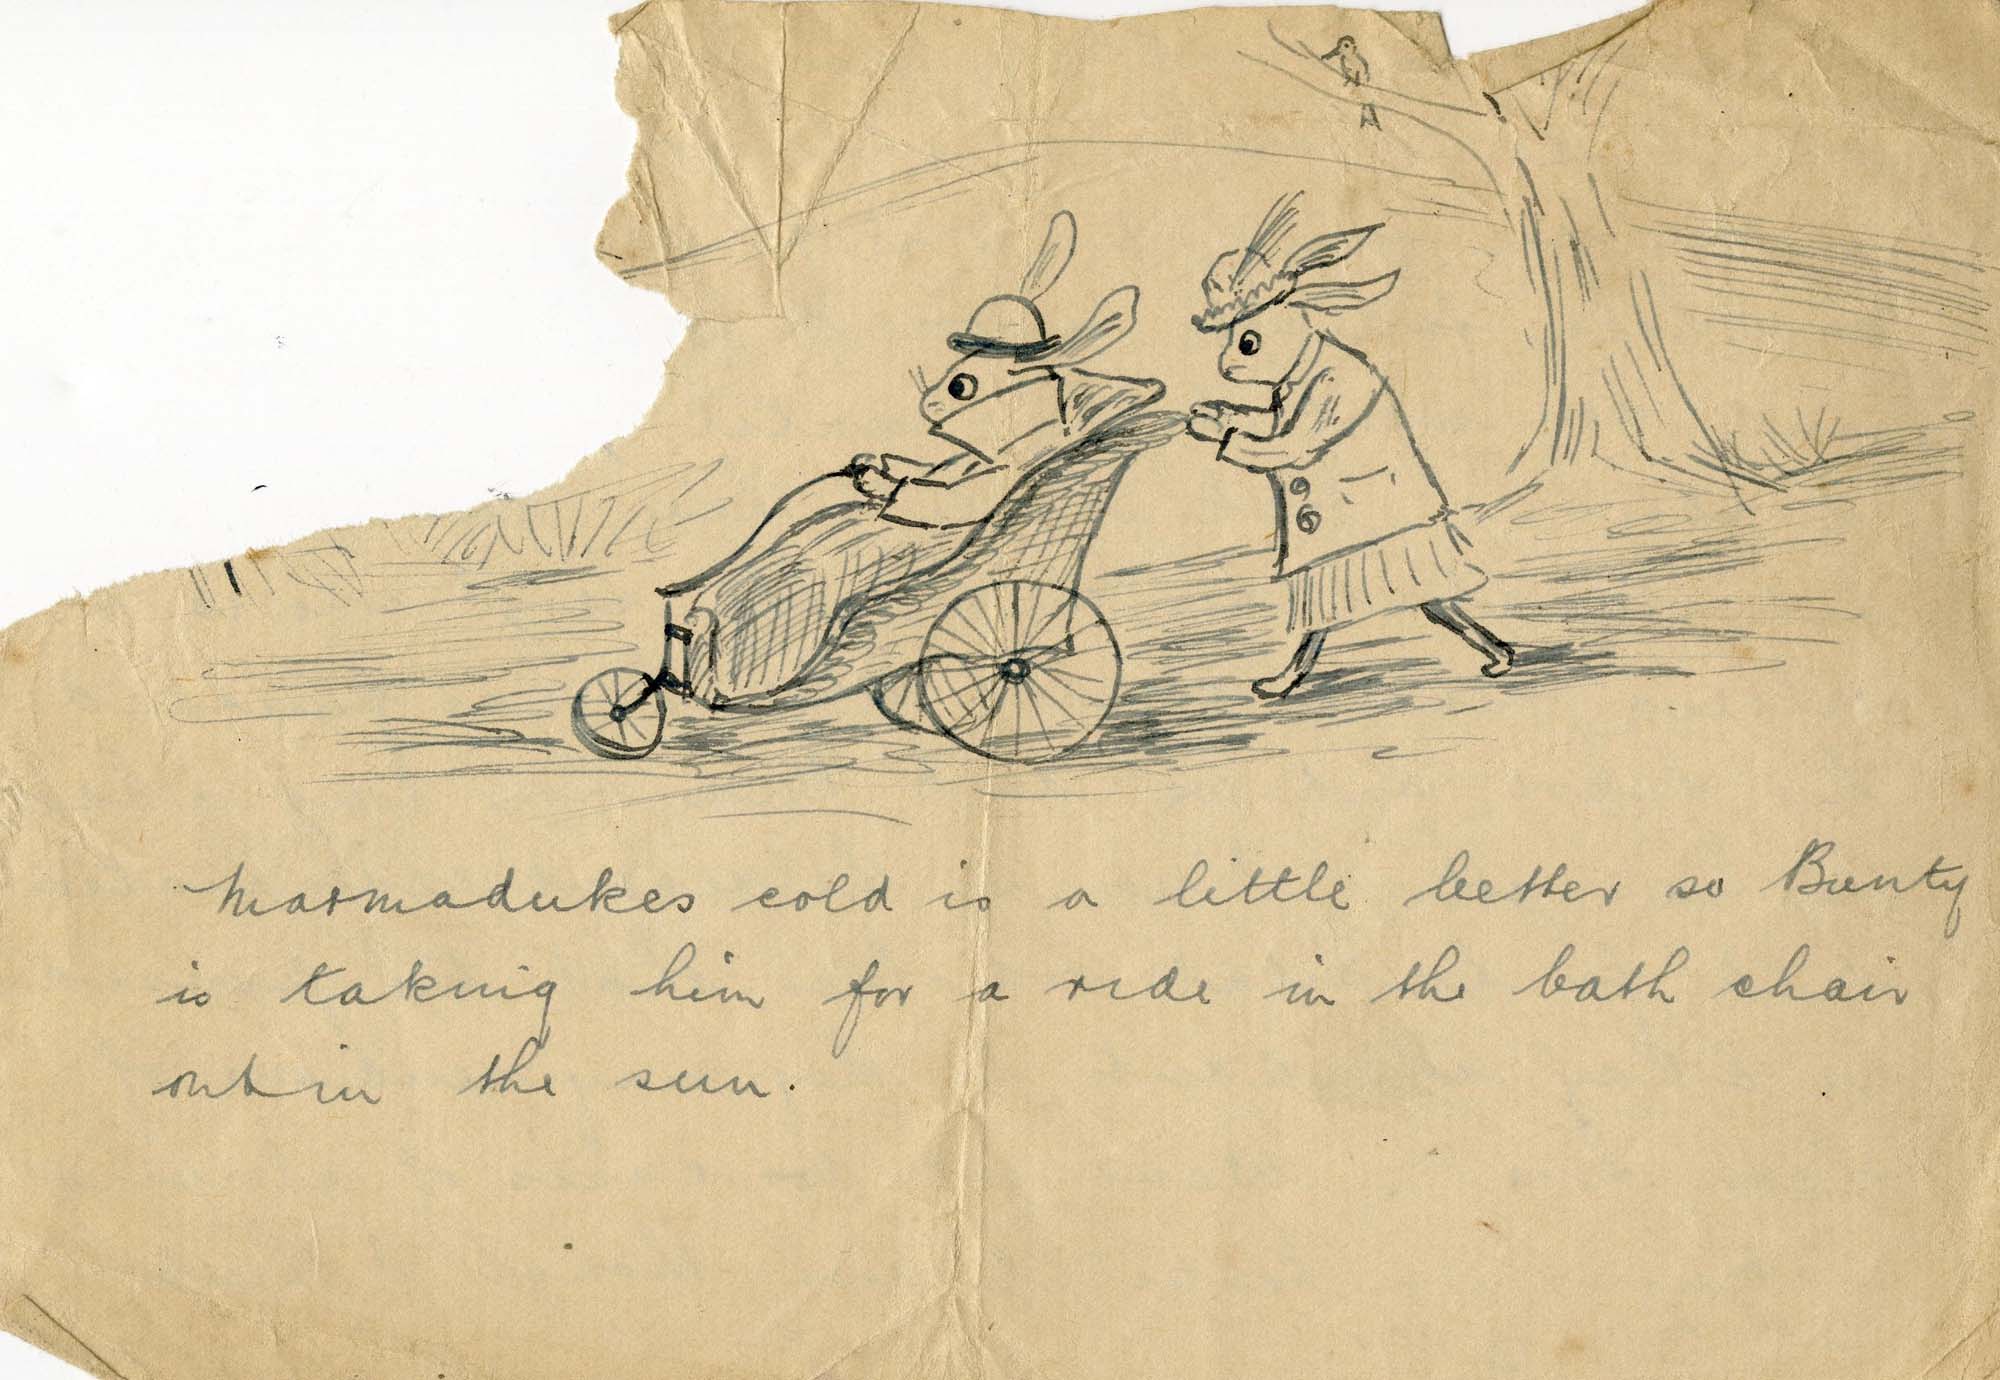 Marmadukes cold is a little better so Bunty
is taking him for a ride in the bath chair
out in the sun.